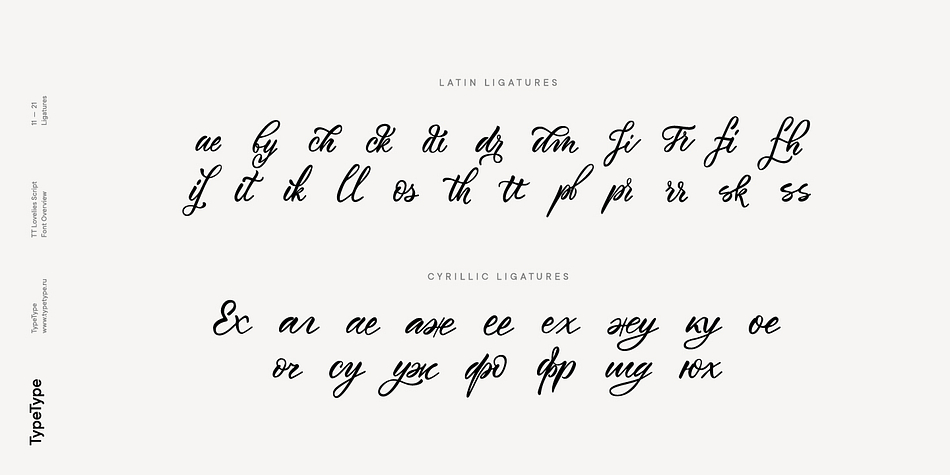 11 — 21
Ligatures
TT Lovelies Script
Font Overview
TypeType
www.typetype.ru
TypeType
LATIN LIGATURES
ae by ch ck di dr dm Fi Fr fi fh
if it ik ll os th tt pf pr rr sk ss
CYRILLIC LIGATURES
Ех аг ае аже ее ех жеу ку ое
ог су уж фо фр шд юх